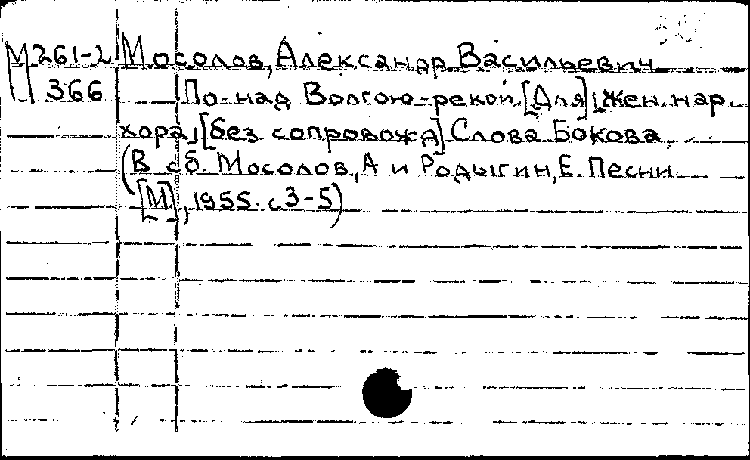 М261-2 Мосолов, Александр Васильевич
366 По-над Волгою-рекой. [Для] жен. нар.
хора, [без сопровожд] Слова Бокова.
(В сб. Мосолов, А и Родыгин, Е. Песни
[М], 1955. с 3-5)